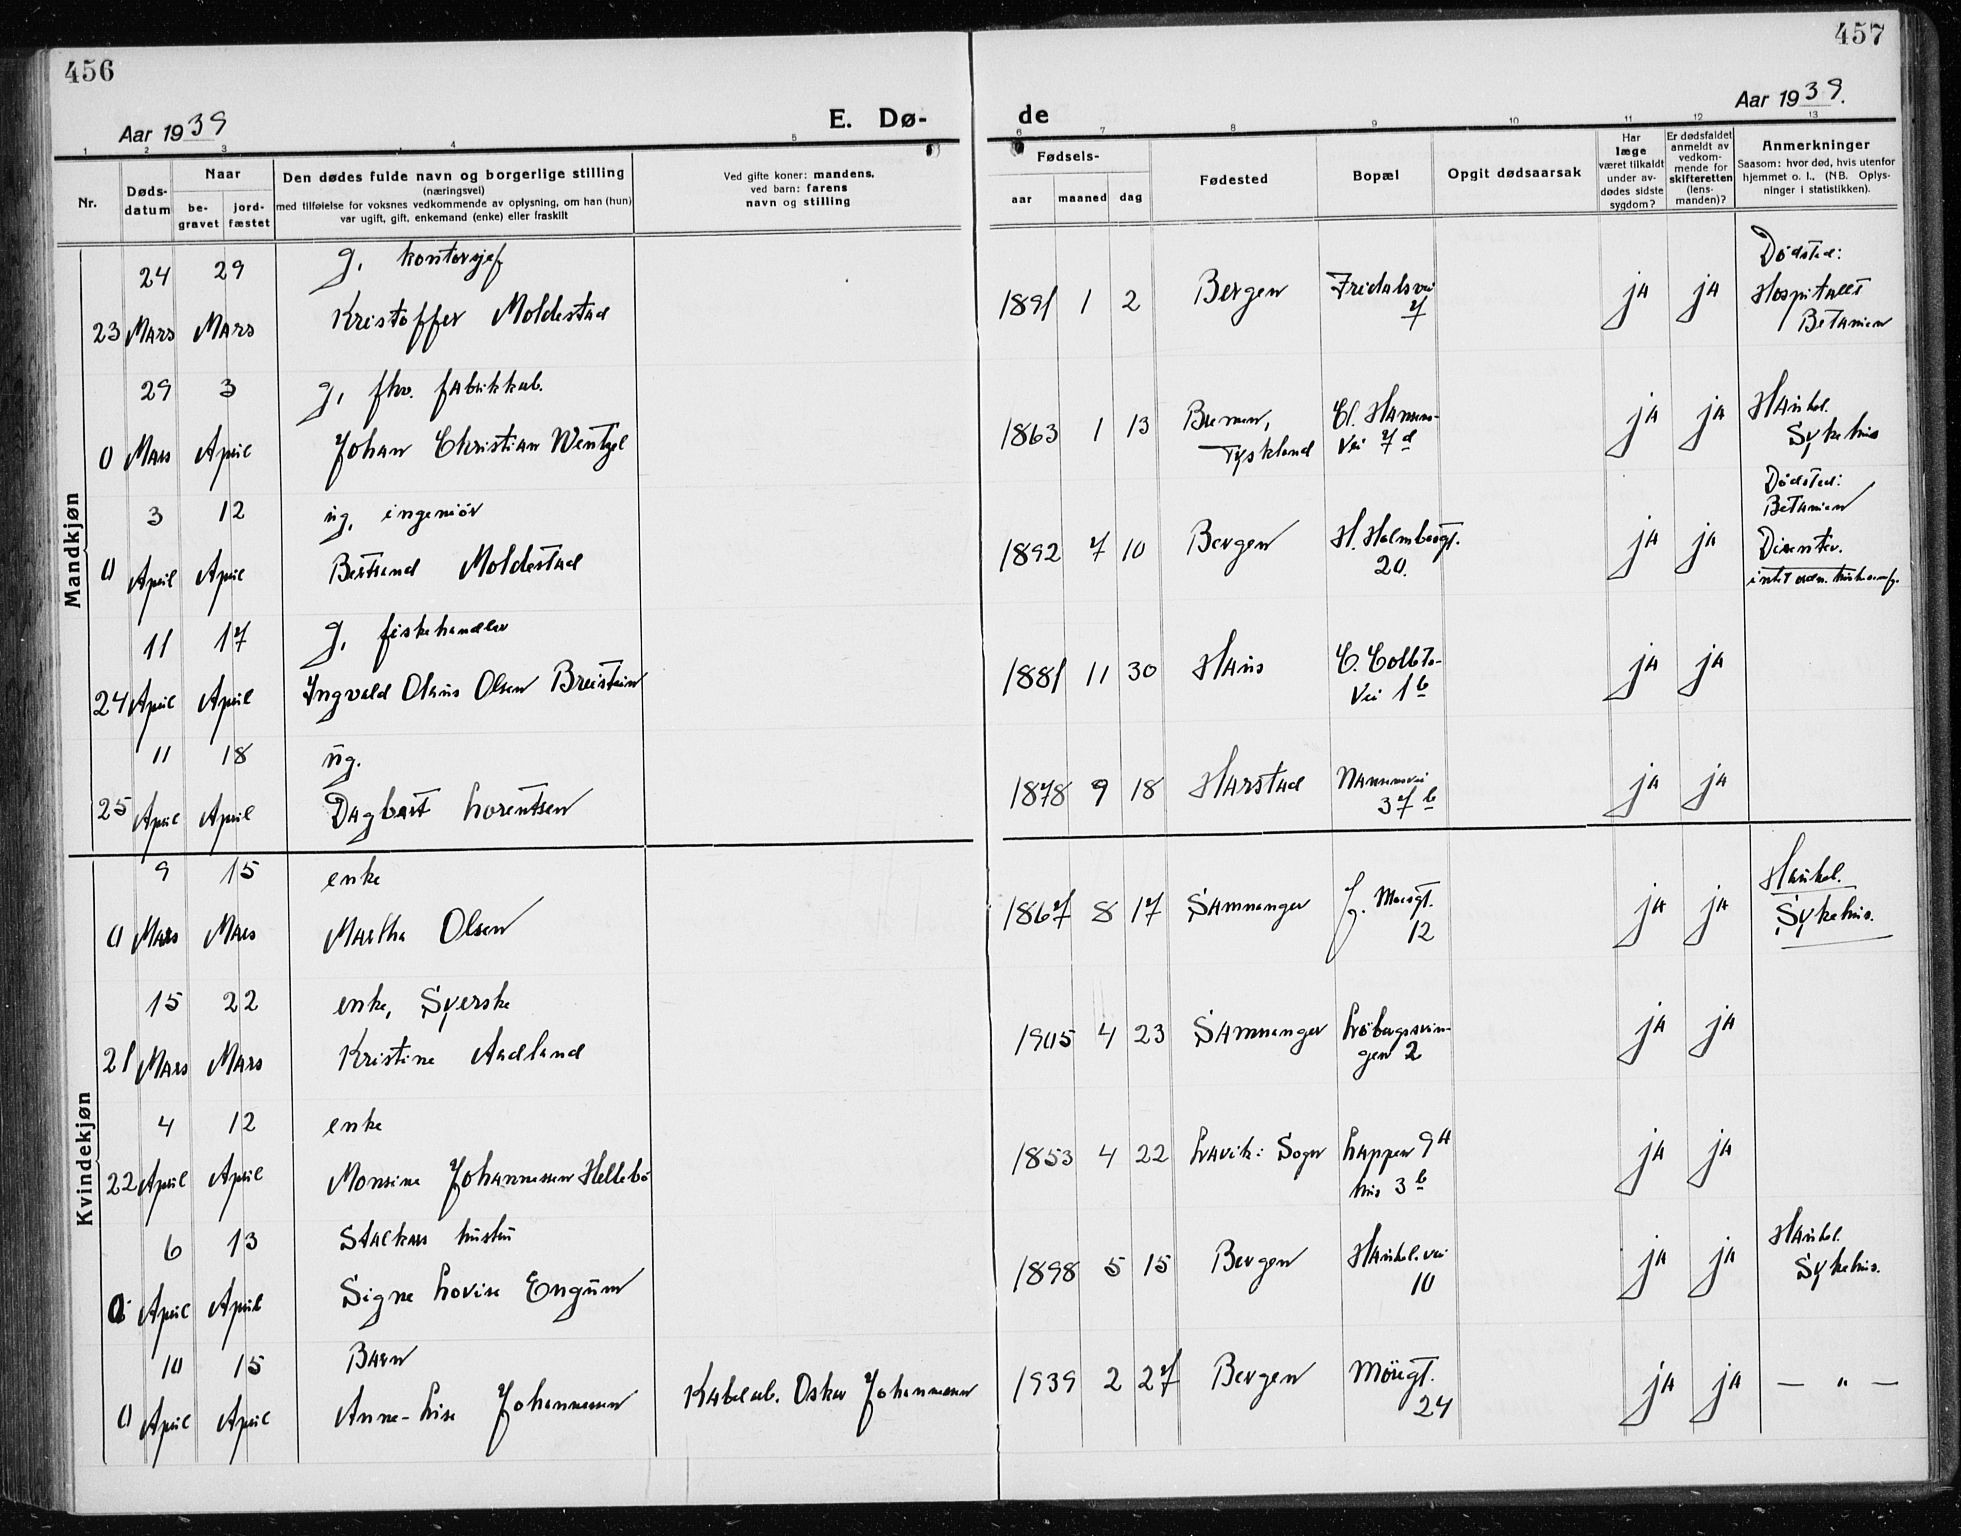 456
457
Aar 1939
E. Dø-
de
Aar 1939.
1 2 3 4 5 6 7 8 9 10 11 12 13
Nr.
Døds-
datum
Naar
be-
gravet
jord-
fæstet
Den dødes fulde navn og borgerlige stilling
(næringsvei)
med tilføielse for voksnes vedkommende av oplysning, om han (hun)
var ugift, gift, enkemand (enke) eller fraskilt
Ved gifte koner: mandens,
ved barn: farens
navn og stilling
Fødsels-
aar maaned dag
Fødested
Bopæl
Opgit dødsaarsak
Har
læge
været tilkaldt
under av-
dødes sidste
sygdom?
Er dødsfaldet
anmeldt av
vedkom-
mende for
skifteretten
(lens-
manden)?
Anmerkninger
Saasom: hvor død, hvis utenfor
hjemmet o. l.. (NB. Oplys-
ninger i statistikken).
Mandkjøn
24 29 g, kontorsjef Dødsted:
23 Mars Mars Kristoffer Moldestad 1891 1 2 Bergen Fridalsvei ja ja Hospitalet
7 Betanien
29 3 g, fhv. fabrikkab.
0 Mars April Johan Christian Wentzel 1863 1 13 Bremen, Cl. Hansens- ja ja Haukel.
Tyskland Vei 7d Sykehus
3 12 ug, ingeniör Dødsted:
Betanien
0 April April Bertrand Moldestad 1892 7 10 Bergen H. Holmboegt. ja ja Disenter.
20. intet ordn.
11 17 g, fiskehandler
24 April April Ingvald Olaus Olsen Breistein 1881 11 30 Haus ja ja
Vei 1b
11 18 ug.
25 April April Dagbart Lorentsen 1878 9 18 Harstad Nansensvei ja ja
37b
Kvindekjøn
9 15 enke Haukel.
0 Mars Mars Martha Olsen 1867 8 17 Samnanger J. ja ja Sykehus.
12
15 22 enke, Syerske
21 Mars Mars Kristine Aadland 1905 4 23 Samnanger Löbergssvin- ja ja
gen 2
4 12 enke
22 April April Monsine Johannessen Hellebö 1853 4 22 Lavik i Sogn Lappen 9de ja ja
hus 3b
6 13 Stalkars hustru Haukel.
0 April April Signe Lovise Engum 1898 5 15 Bergen Haukel.vei ja ja Sykehus.
10
10 15 Barn
0 April April Anne-Lise Johannessen Kabelab. Oskar Johannessen 1939 2 27 Bergen Möregt. ja ja — " —
24